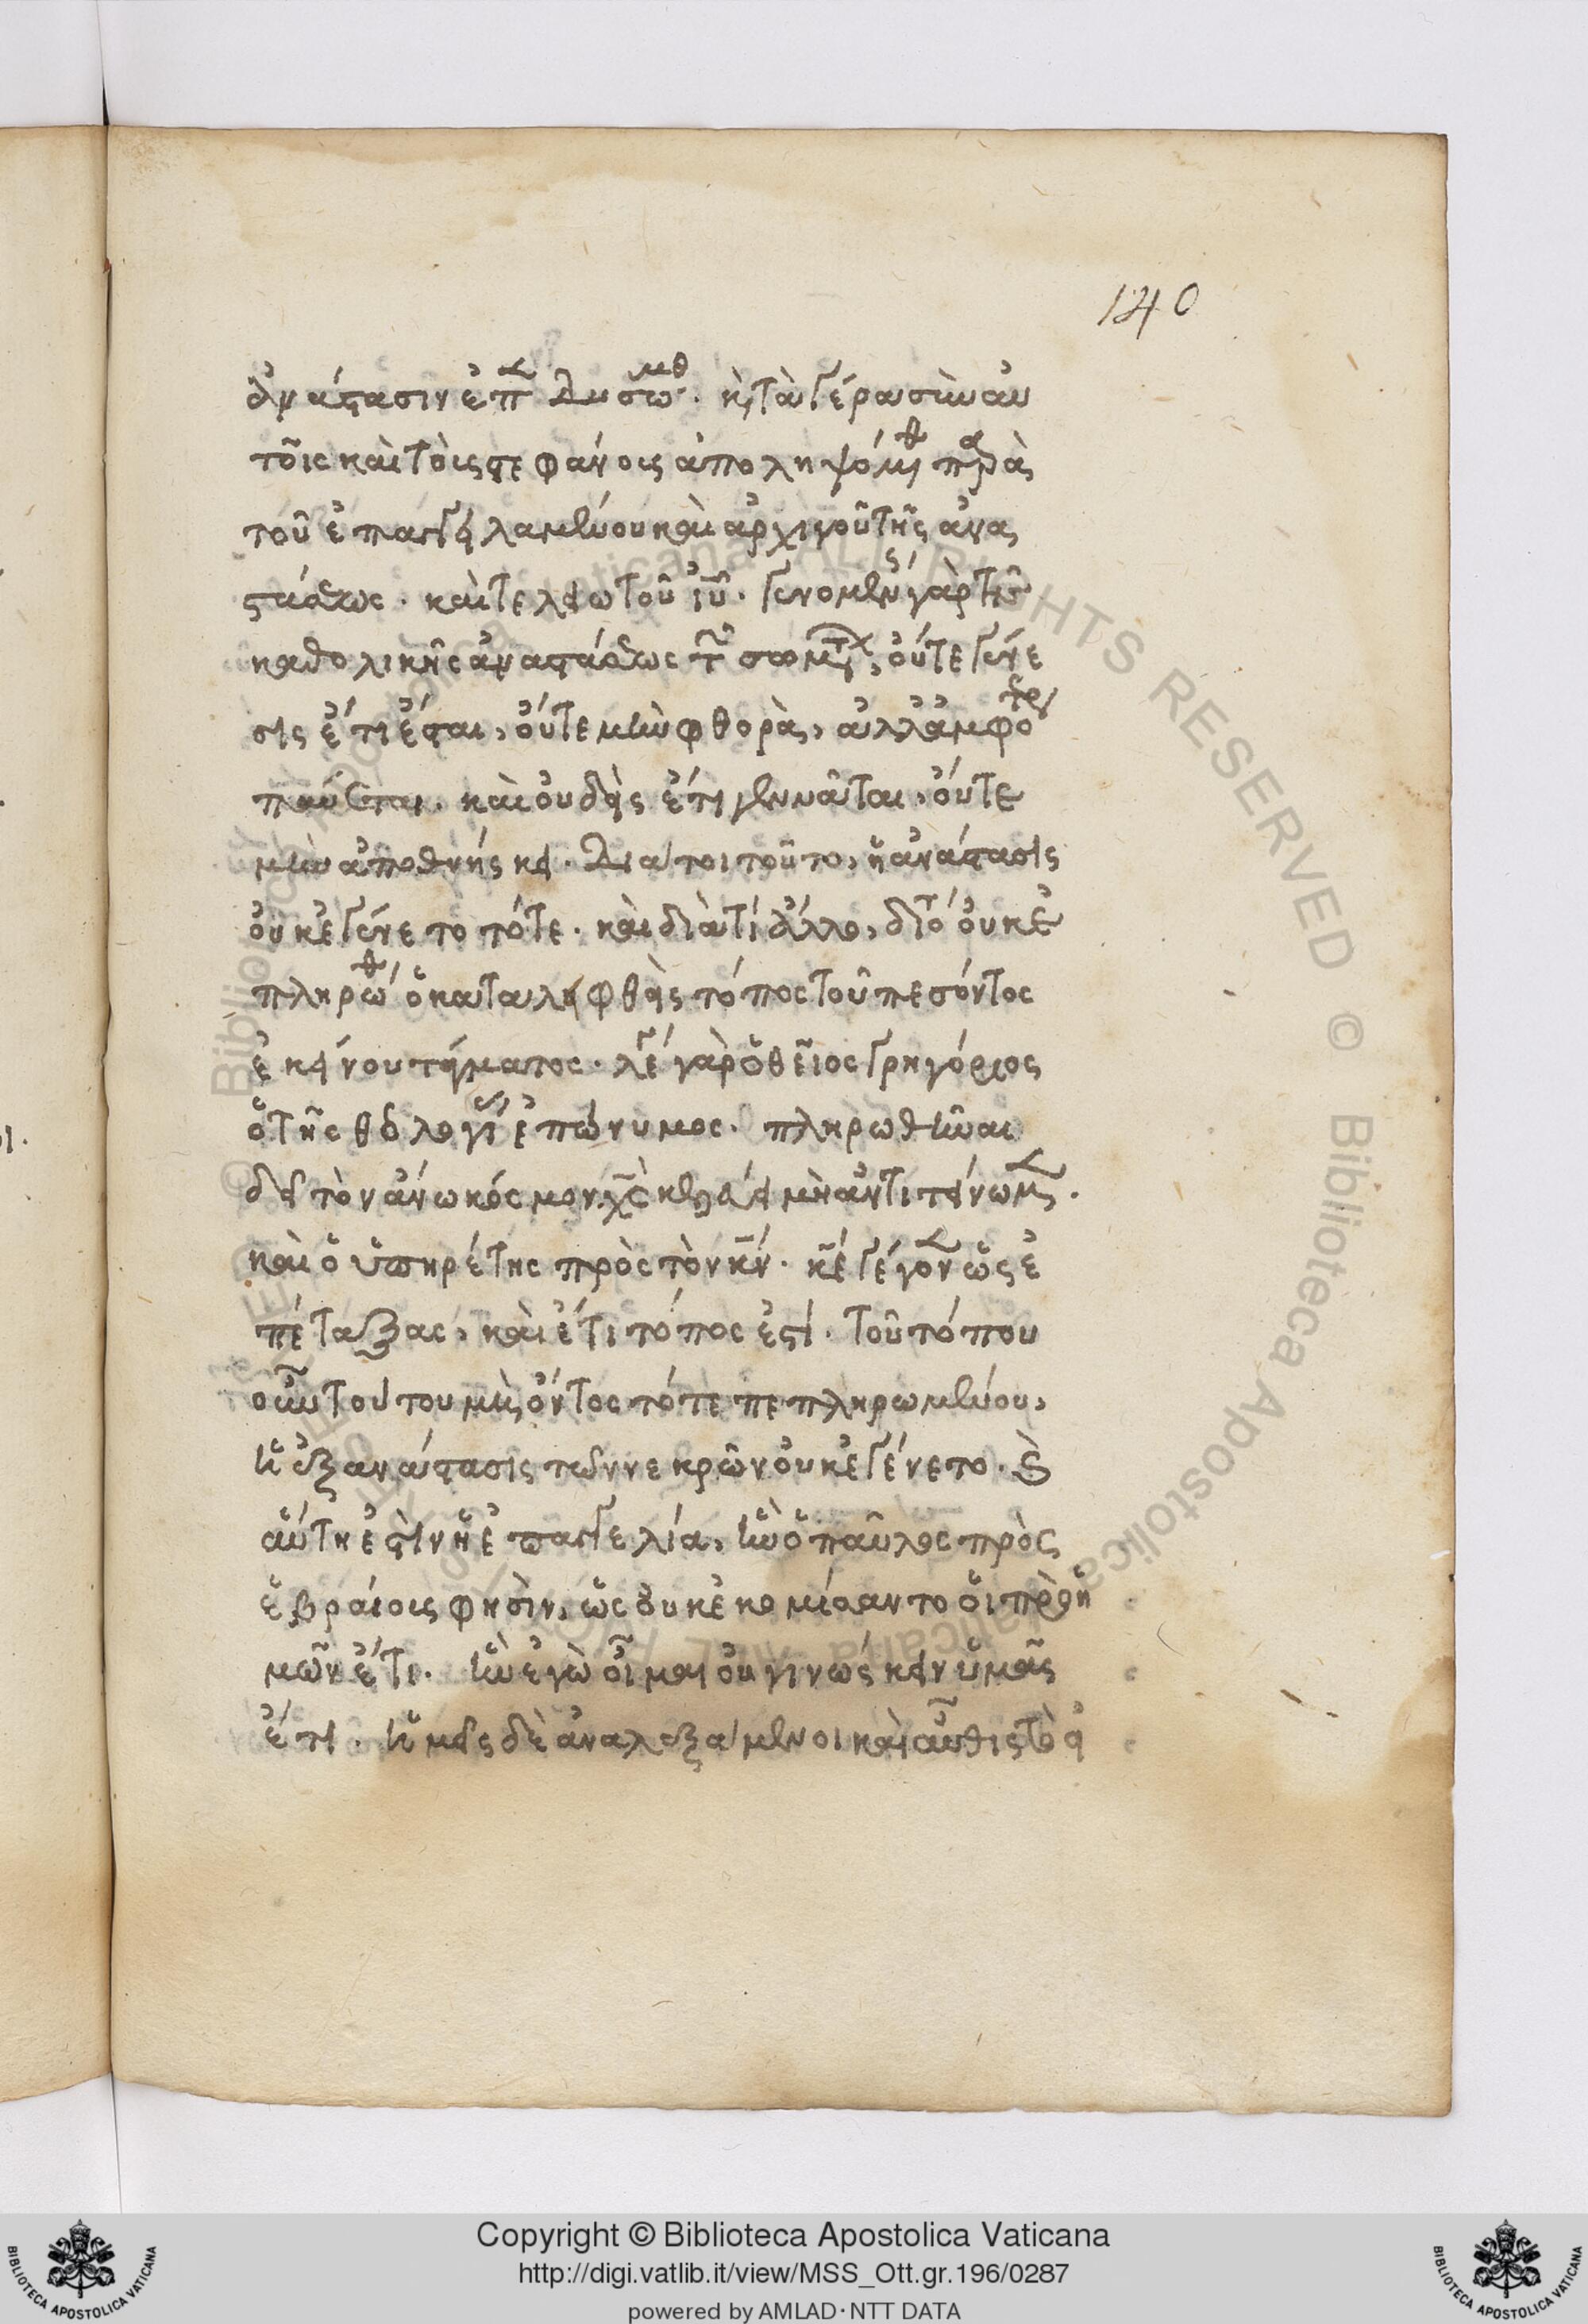 140
ἀνάστασιν ἐπ δυσω μθ. κ τὰ γέρα σὺν αὐ
τοῖς καὶ τοῖς στεφάνοις ἀποληψόμθ πρὰ
τοῦ ἐπαγγειλαμένου καὶ ἀρχηγοῦ τῆς ἀνα
στάσεως. καὶ τελειωτοῦ ἰῦ. γενομένης γὰρ τῆς
καθολικῆς ἀναστάσεως τ σωμτ, οὔτε γένε
σις ἔτι ἔσται, οὔτε μὴν φθορὰ, ἀλλ ἀμφότερ
παύσεται. καὶ οὐδεὶς ἔτι γεννᾶται, οὔτε
μὴν ἀποθνήσκει. Διατοι τοῦτο, ἡ ἀνάστασις
οὐκ ἐγένετο τότε. καὶ διὰ τί ἄλλο, διότ οὐκ ἐ
πληρώθ ὁ καταληφθεὶς τόπος τοῦ πεσόντος
ἐκείνου τάγματος. λέγ γὰρ ὁ θεῖος Γρηγόριος
ὁ τῆς θεολογί ἐπώνυμος. πληρωθῆναι
δεῖ τὸν ἄνω κόσμον. χς κελεύει μὴ ἀντιτείνωμεν.
καὶ ὁ ὑπηρέτης πρὸς τὸν κν. κέ γέγονεν ὡς ἐ
πέταξας, καὶ ἔτι τόπος ἐστί. τοῦ τόπου
οὖν τούτου μὴ ὄντος τότε πεπληρωμένου,
ἡ ἐξανάστασις τῶν νεκρῶν οὐκ ἐγένετο. καὶ
αὕτη ἐστὶν ἡ ἐπαγγελία, ἣν ὁ παῦλος πρὸς
ἑβραίοις φησὶν, ὡς οὐκ ἐκομίσαντο οἱ πρὸ ἡ
μῶν ἔτι. ἣν ἐγὼ οἶμαι οὐ γινώσκειν ὑμᾶς
ἔτι. ἡμεῖς δὲ ἀναλεξάμενοι καὶ αὖθις τὸ εἰ
Copyright © Biblioteca Apostolica Vaticana
http://digi.vatlib.it/view/MSS_Ott.gr.196/0287
powered by AMLAD·NTT DATA
BIBLIOTECA APOSTOLICA VATICANA
BIBLIOTECA APOSTOLICA VATICANA